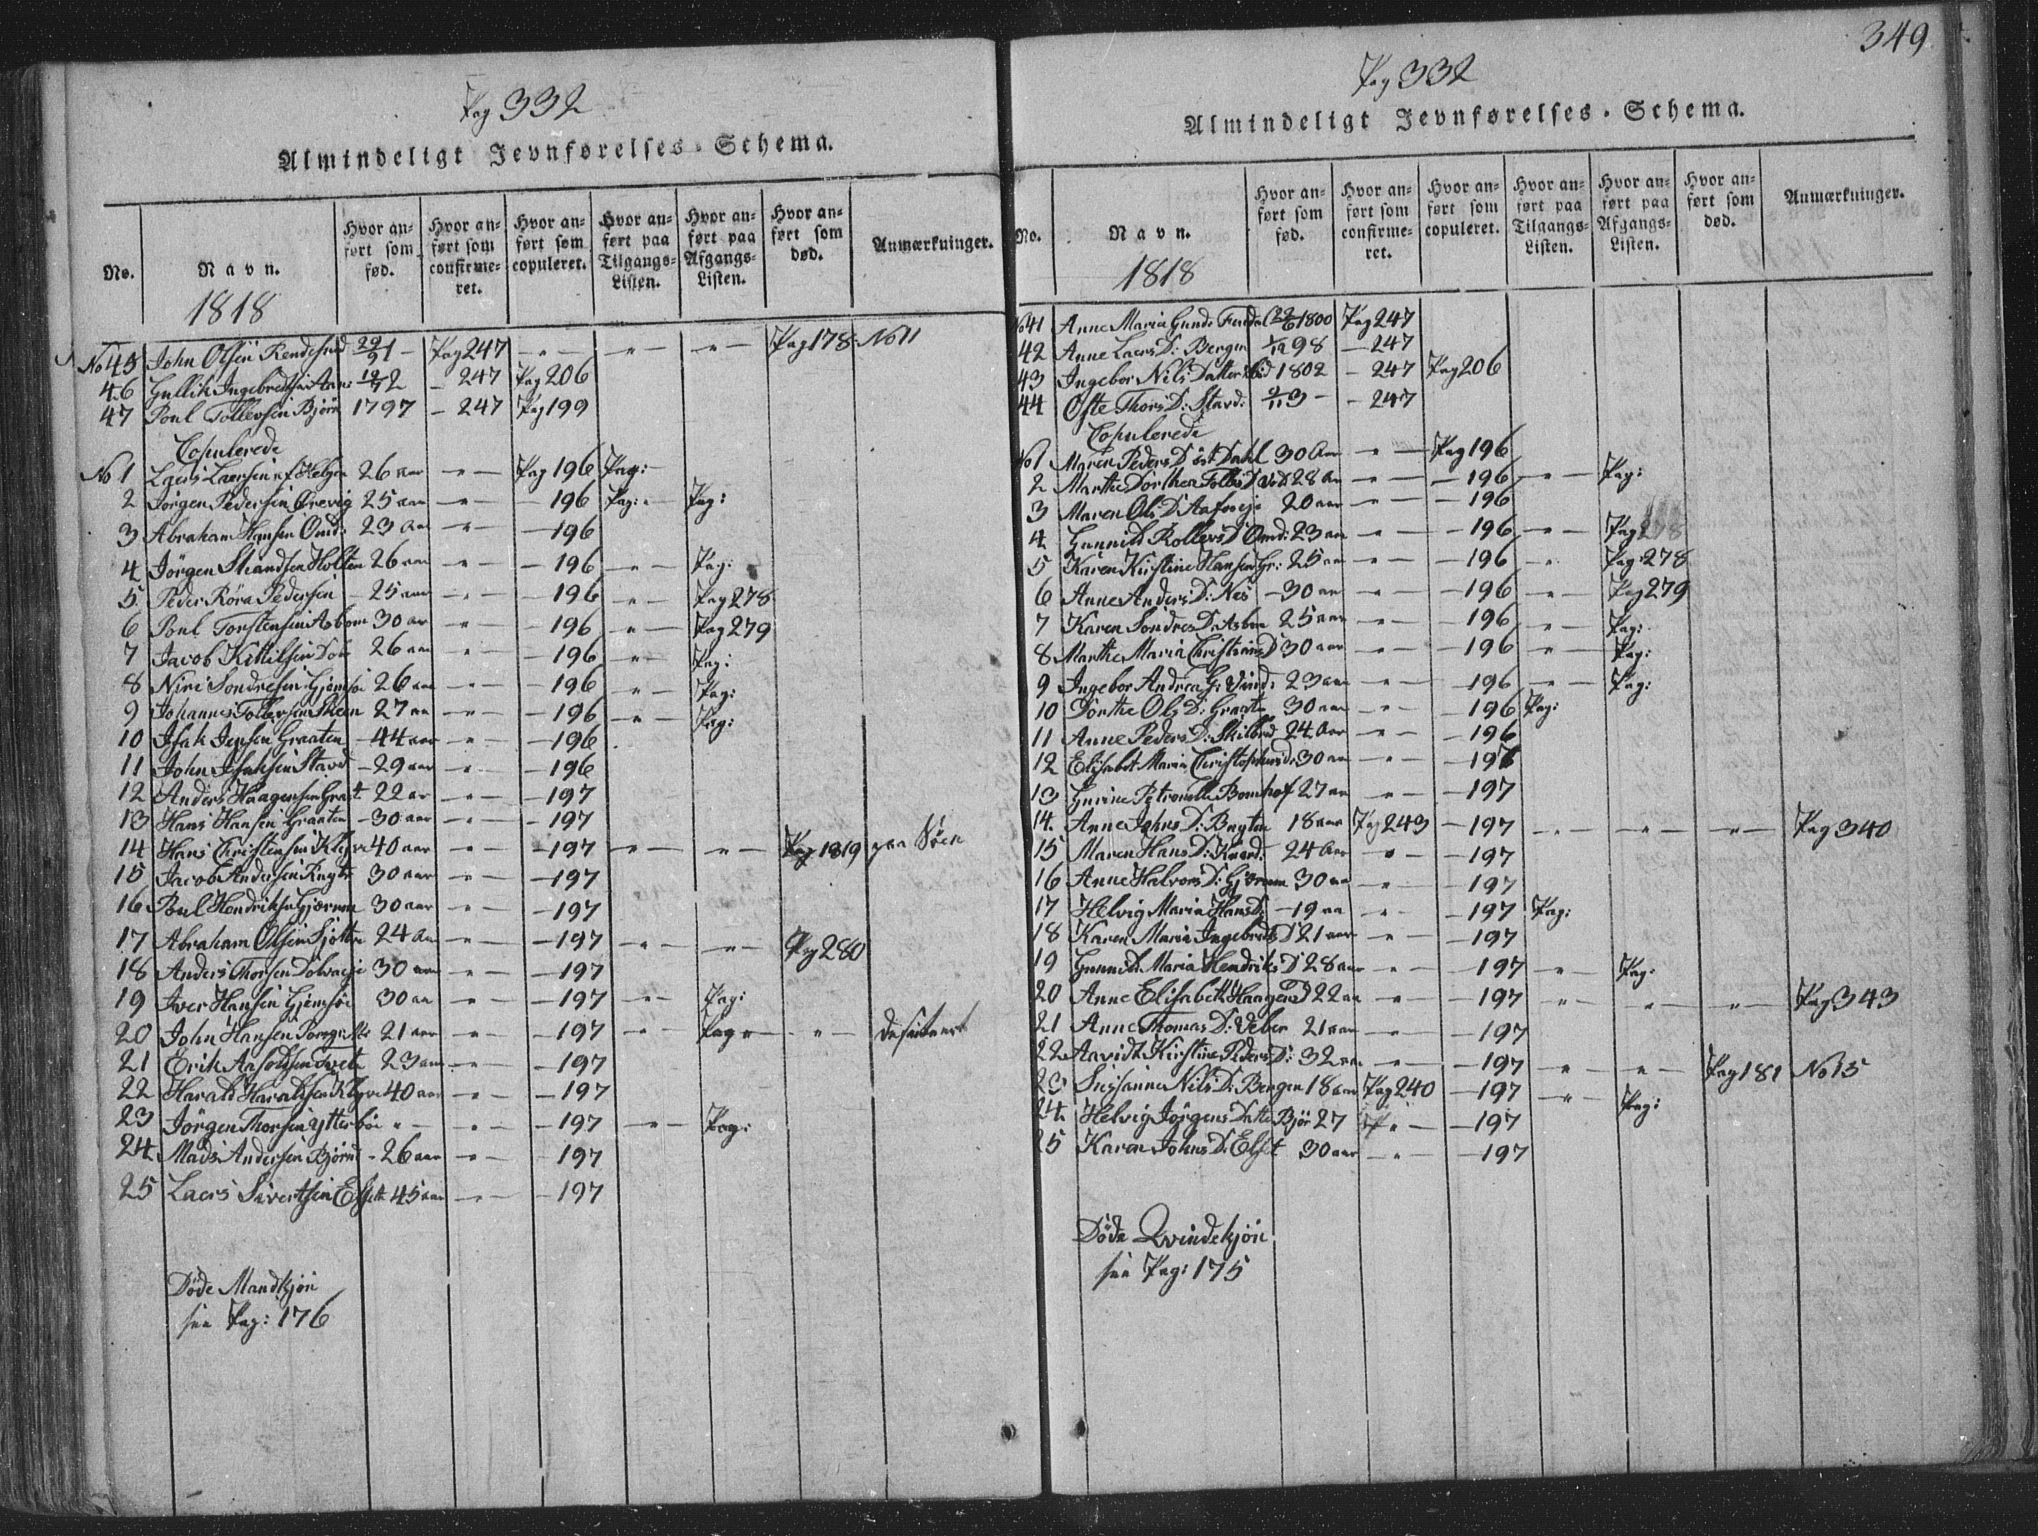 349
Pag 332
Almindeligt Jevnførelses-Schema.
No.
Navn.
1818
Hvor anført som fød.
Hvor anført som confirmeret.
Hvor anført som copuleret.
Hvor anført paa Tilgangs-Listen.
Hvor anført paa Afgangs-Listen.
Hvor anført som død.
Anmærkninger.
No 45 John Olsen 29/9 1 - Pag 247 - " - - " - - " - Pag 178 No 11
46 Gullik Ingebretsen 19/7 2 - 247 Pag 206
47 Poul Tollevsen Bjørn 1797 - 247 Pag 199
Copulerede
No 1 Laers Laersen 26 aar - " - Pag 196 Pag:
2 Jørgen Pedersen 25 aar - " - - 196 Pag: " Pag:
3 Abraham Hansen 23 aar - " - - 196
4 Jörgen Strandsen Holten 26 aar - " - - 196 - " - Pag:
5 Peder Röra Pedersen - 25 aar - " - - 196 " - Pag 278
6 Poul Torstensen 30 aar - " - - 196 " - Pag 279
7 Jacob Kittilsen 26 aar - " - - 196 - " - Pag:
8 Niri Sondresen 26 aar - " - - 196 " - Pag:
9 Johannes Tollevsen 27 aa - " - - 196 - " - Pag:
10 Isak Jensen Graaten - 44 aar - " - - 196
11 John Isaksen Stavd - 29 aar - " - - 196
12 Anders Haagensen 22 ar - " - - 197
13 Hans Hansen Graaten - 30 aar - " - - 197
14 Hans Christensen 40 aar - " - - 197 - " - - " - Pag 1819 paa Søen
15 Jacob Andersen 30 aar - " - - 197
16 Poul Hendriksen 30 aar - " - - 197
17 Abraham Olsen 24 aar - " - - 197 - " - - " - Pag 280
18 Anders Thorsen 30 aar - " - - 197
19 Iver Hansen 30 aa - " - - 197 - " - Pag:
20 John Hansen 21 aar - " - - 197 - " - Pag " - " - deserteert
21 Erik 23 aar - " - - 197
22 Harald Haraldsen 40 aar - " - - 197
23 Jörgen Thorsen Ytterböe " - - " - - 197 - " - Pag:
24 Mads Andersen - 26 aar - " - - 197
25 Laers Sivertsen 45 aar - " - - 197
Døde Mandkjøn
see Pag: 176
Pag 332
Almindeligt Jevnførelses-Schema.
No.
Navn.
1818
Hvor anført som fød.
Hvor anført som confirmeret.
Hvor anført som copuleret.
Hvor anført paa Tilgangs-Listen.
Hvor anført paa Afgangs-Listen.
Hvor anført som død.
Anmærkninger.
No 41 Anne Maria 1800 Pag 247
42 Anne Laers D: Bergen 98 - 247
43 Ingebor Nils Datter 1802 - 247 Pag 206
44 Thors D: Stavd: 9/11 3 - - 247
Copulerede
No 1 Maren Peders D Dahl 30 aar - " - Pag 196
2 Marthe Dorthea 28 aa - " - - 196 - " - Pag:
3 Maren Ols D 20 aar - " - - 196
4 Gunnild Rollevs D 23 aar - " - - 196 - " - Pag
5 Karen Kirstine Hansen 25 aa - " - - 196 - " - Pag: 278
6 Anne Anders D: Nes - 30 aar - " - - 196 - " - Pag 279
7 Karen Sondres D 25 aar - " - - 196 - " - Pag:
8 Marthe Maria Christians D 30 aar - " - - 196 - " - Pag:
9 Ingebor Andrea 23 aar - " - - 196 - " - Pag:
10 Dorthe Ols D: 30 aar - " - - 196 Pag:
11 Anne Peders D: 24 aar - " - - 196
12 Elisabet Maria 30 aar - " - - 196
13 Gurine Petronelle Bomhof 27 aar - " - - 197
14 Anne Johns D: 18 aar Pag 243 - 197 - " - - " - - " - Pag 340
15 Maren Hans D: 24 aar " - - 197
16 Anne Halvors D: 30 aa - " - - 197
17 Helvig Maria Hans D: - 19 aa - " - - 197 Pag:
18 Karen Maria Ingebrets D 21 aar - " - - 197
19 Gunnild Maria Hendriks D 28 aar - " - - 197 - " - Pag:
20 Anne Elisabeth Haagens D 22 aa - " - - 197 " - " - " - Pag 343
21 Anne Thomas D: Veber 21 aar - " - - 197
22 Kirstine Peders D: 32 aa - " - - 197 - " - - " - Pag 181 No 15
23 Susanne Nils D: Bergen 18 aar Pag 240 - 197 - " - Pag:
24 Helvig Jørgens Datter 27 " - - 197
25 Karen Johns D: 30 aar - " - - 197
Døde Qvindekjøn
see Pag: 175